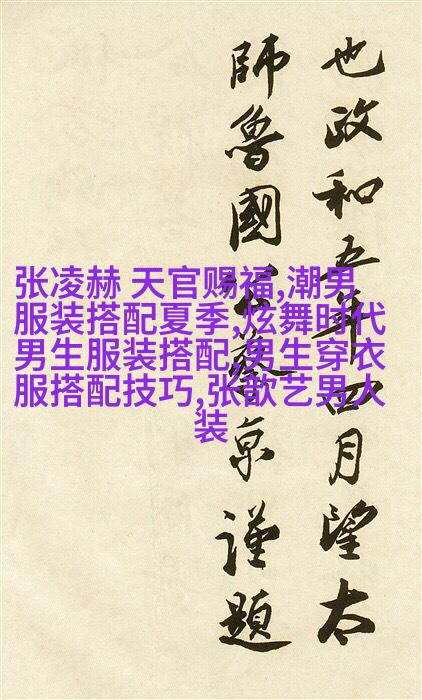 也政和五年四月望太
師魯國公蔡京謹題
张凌赫 天官赐福,潮男
服装搭配夏季,炫舞时代
男生服装搭配,男生穿衣
服搭配技巧,张歆艺男人
装